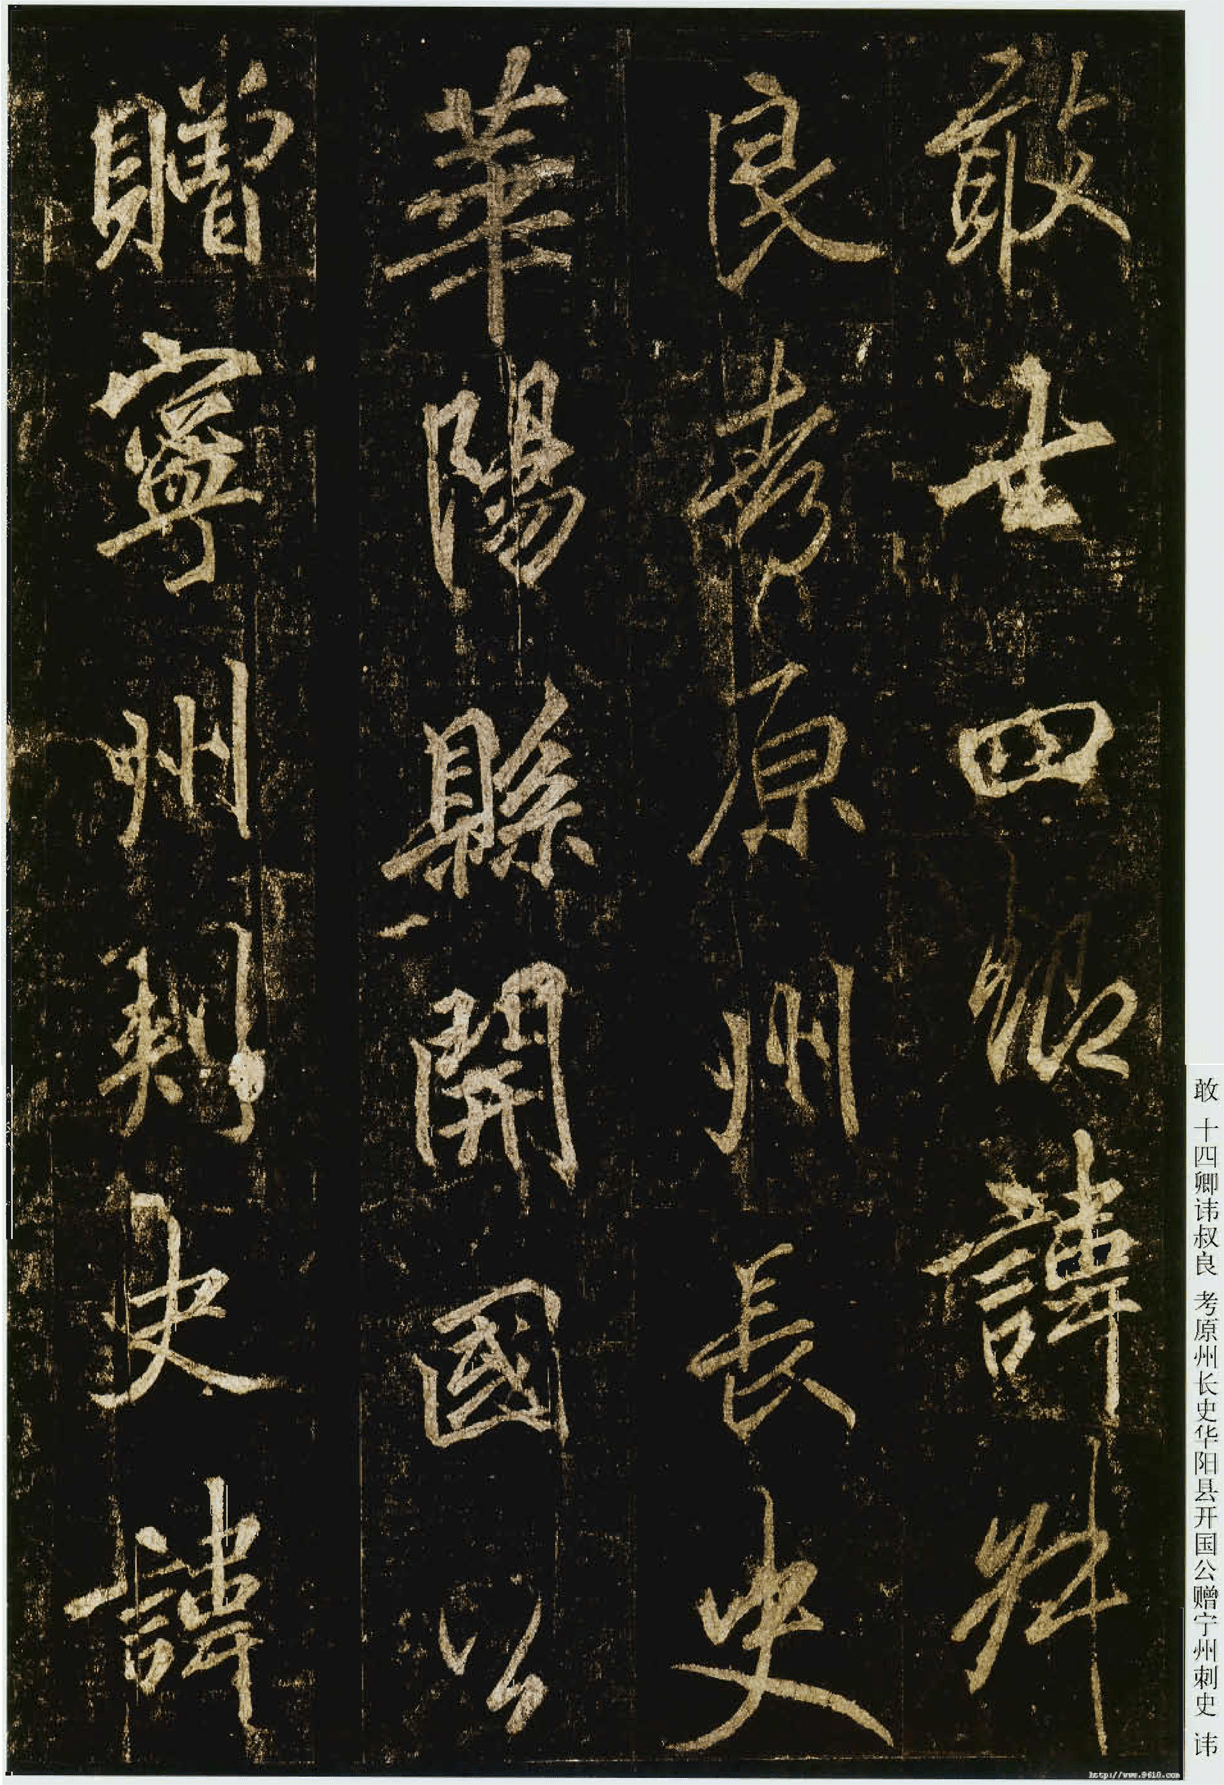 敢士四卿諱叔
良考原州長史
華陽縣開國公
贈寧州刺史諱
敢 十四卿讳叔良 考原州长史华阳县开国公赠宁州刺史 讳
http://www.9610.com